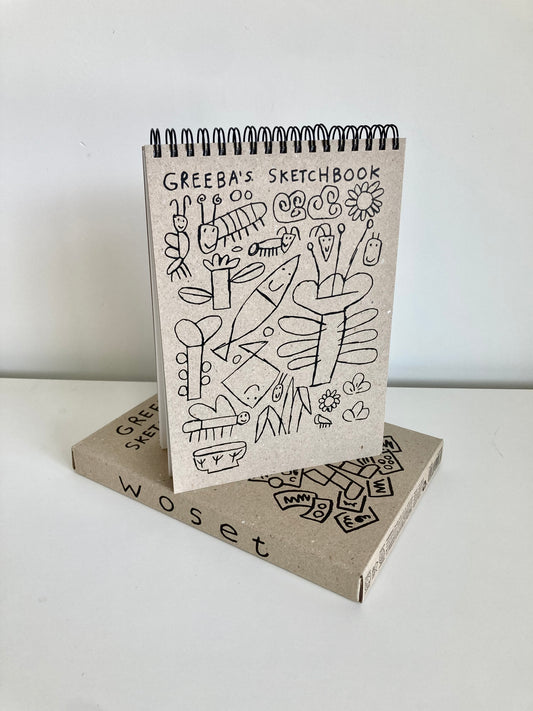 GREEBA'S SKETCHBOOK
GREE
SKET
woset